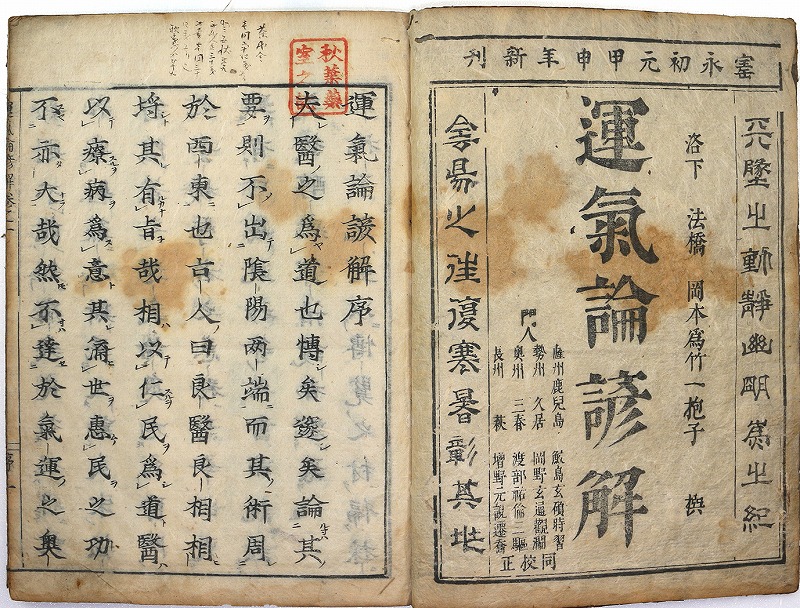 寳永初元甲申年新刊
天墜之動靜幽明爲之紀
洛下 法橋 岡本爲竹一抱子 撰
運氣論諺解
門人
薩州鹿兒島 鮫島玄碩時習
勢州 久居 岡野玄通觀瀾
奥州 三春 渡部祐倫三驅
長州 萩 增野元觀遷喬
同校正
侌昜之往復寒暑彰其兆
秋葉藥
室之
運氣論諺解序
夫醫之為道也愽矣邃矣論其
要則不出陰陽两端而其術周
於西東也古人曰良醫良相相
埒其有旨哉相以仁民為道醫
以療病為意其涌世惠民之功
不亦大哉然不達於氣運之奥